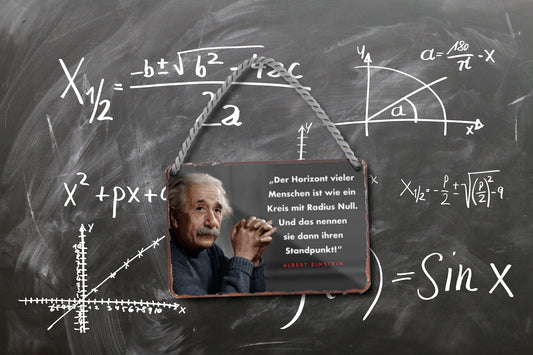 X1/2 = -b±√b²-4ac
2a
y
a = 180/π · x
a
x
y
x
x² + px + q
X1/2 = - p/2 ± √(p/2)² - q
„Der Horizont vieler
Menschen ist wie ein
Kreis mit Radius Null.
Und das nennen
sie dann ihren
Standpunkt!“
ALBERT EINSTEIN
y
x
) = Sin x